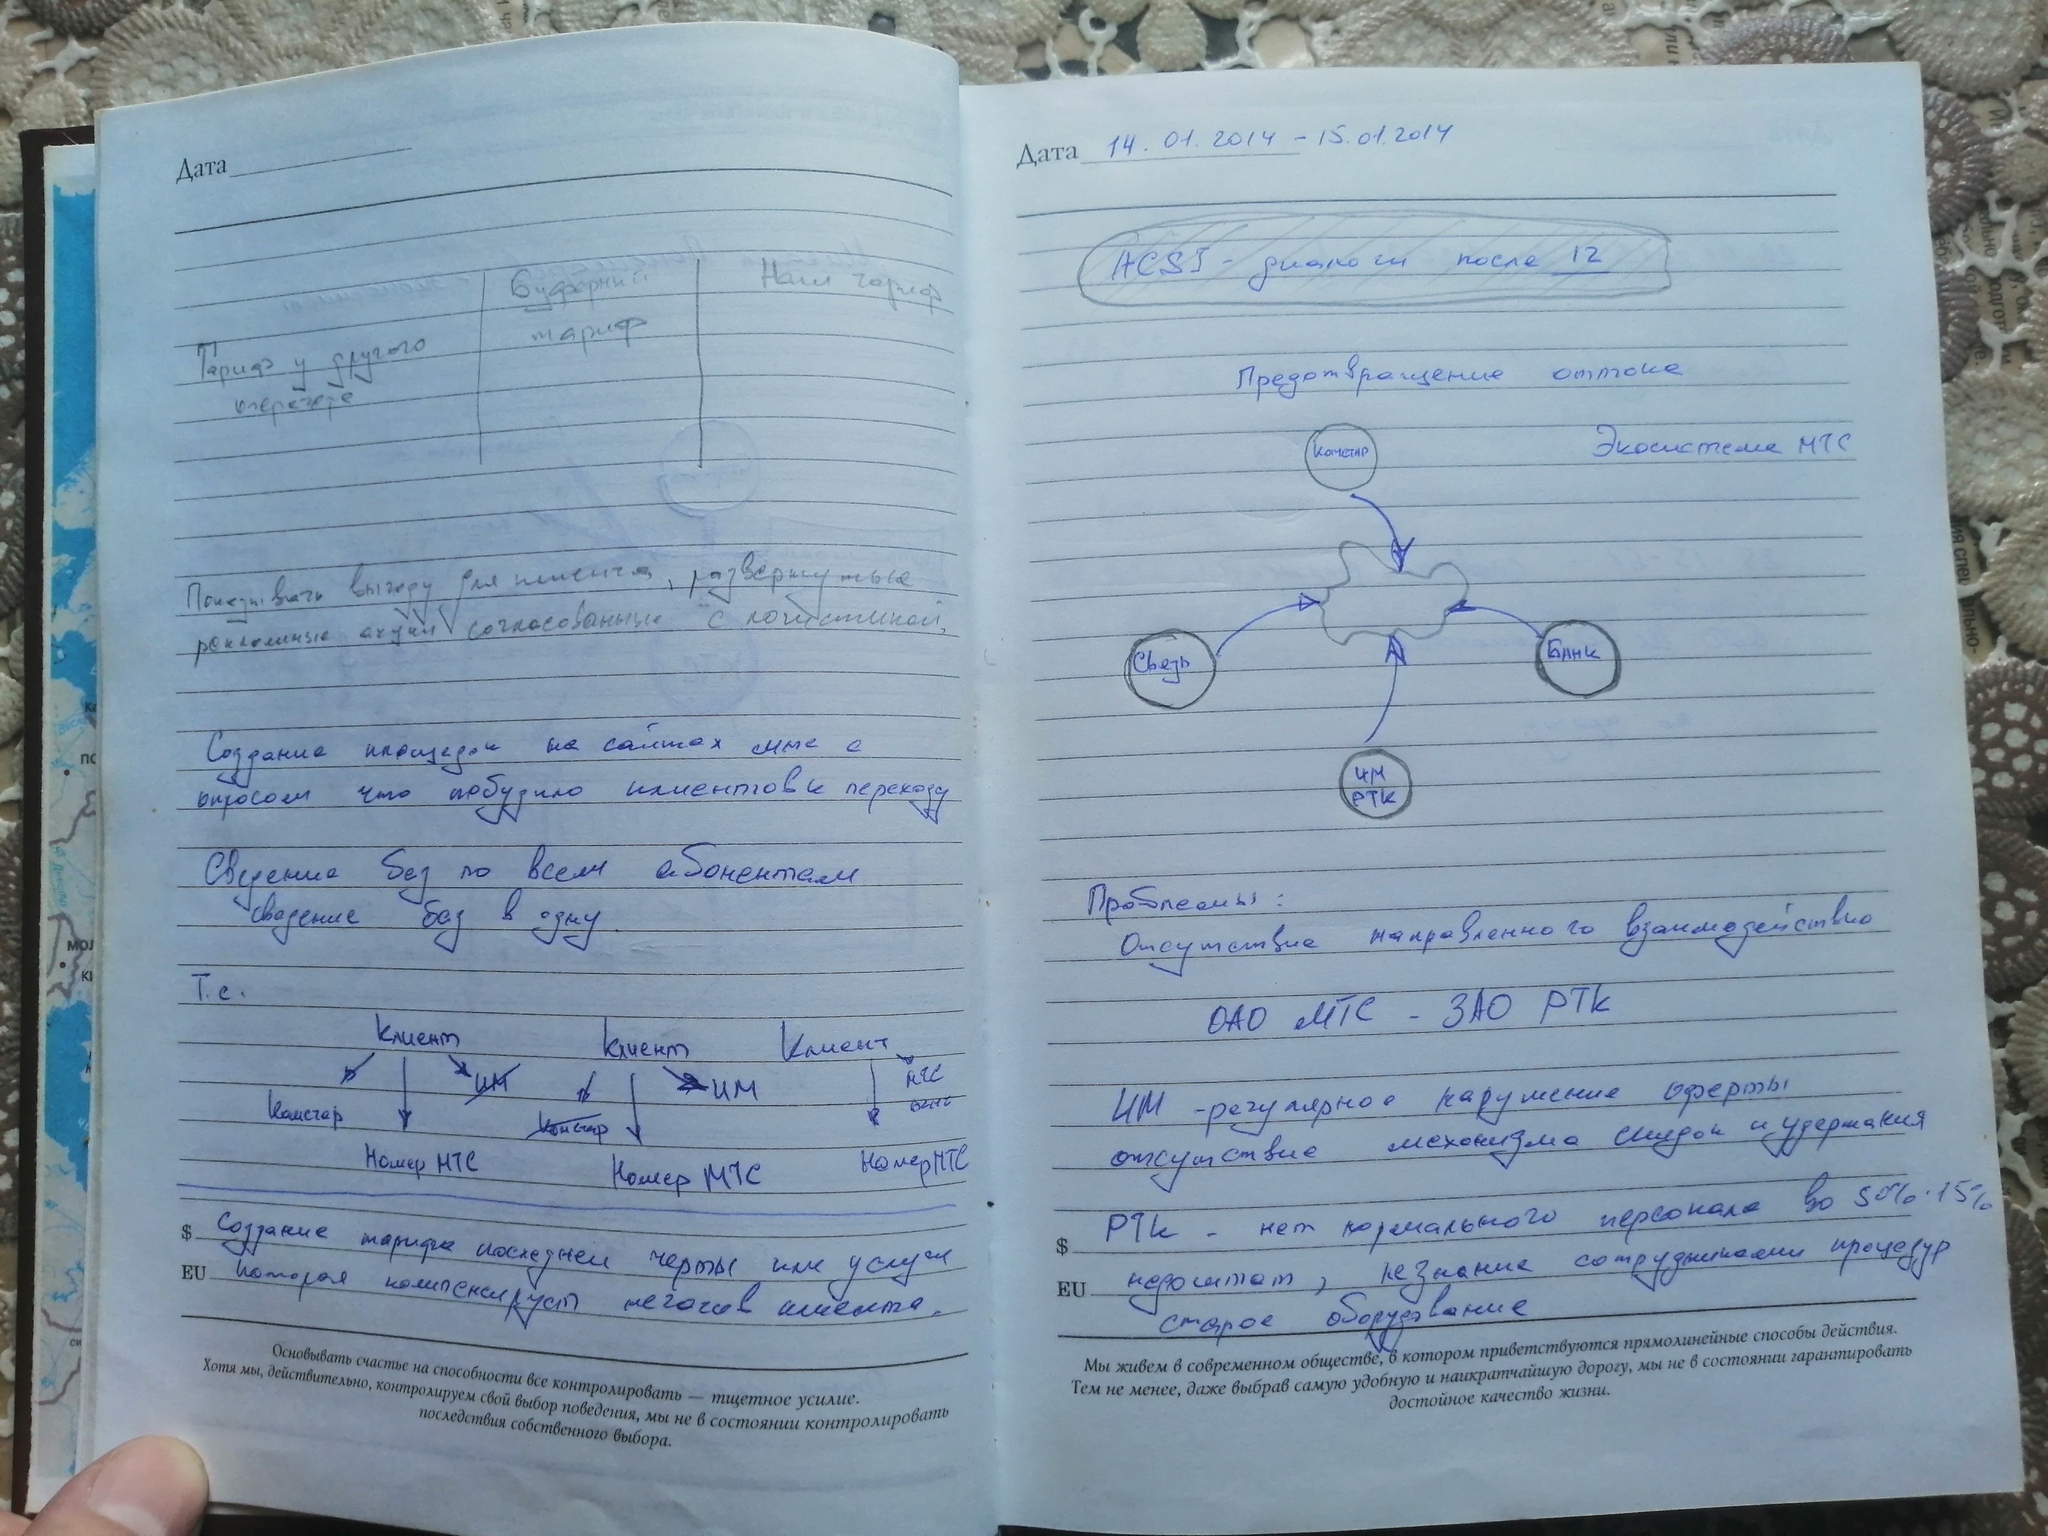 Дата
Буферный
тариф
Наш тариф
Тариф у другого
оператора
Показывать выгоду для клиента, развернутые
рекламные акции согласованные с логистикой.
Создание площадок на сайтах мтс с
опросом что побудило клиентов к переходу
Сведение баз по всем абонентам
сведение баз в одну.
Т.е.
Клиент Клиент Клиент
Комстар ИМ Комстар ИМ МТС
Номер МТС Номер МТС Номер МТС
$ Создание тарифа последней черты или услуги
EU которая компенсирует негатив клиента.
Основывать счастье на способности все контролировать — тщетное усилие.
Хотя мы, действительно, контролируем свой выбор поведения, мы не в состоянии контролировать
последствия собственного выбора.
Дата 14.01.2014 - 15.01.2014
ACSI - диалоги после 12
Предотвращение оттока
Экосистема МТС
Комстар
Связь
Банк
ИМ
РТК
Проблемы:
Отсутствие направленного взаимодействия
ОАО МТС - ЗАО РТК
ИМ - регулярное нарушение оферты
отсутствие механизма скидок и удержания
$ РТК - нет нормального персонала во 50% 15%
EU недоштат, незнание сотрудниками процедур
старое оборудование
Мы живем в современном обществе, в котором приветствуются прямолинейные способы действия.
Тем не менее, даже выбрав самую удобную и наикратчайшую дорогу, мы не в состоянии гарантировать
достойное качество жизни.